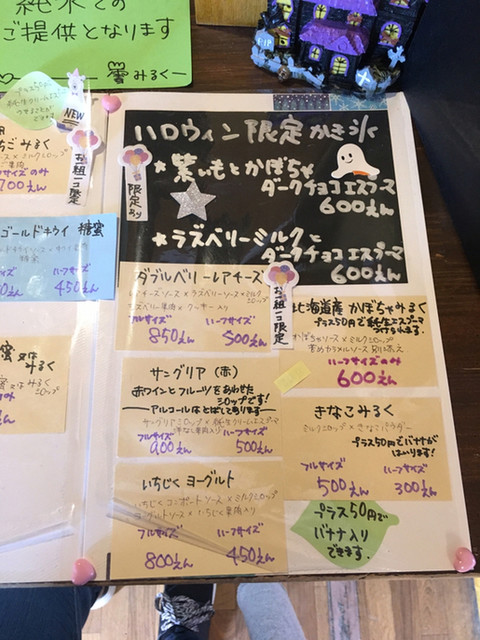 純氷での
ご提供となります
雪みるく
プラス50円で
NEW
お一組一コ限定
ちごみるく
サイズのみ
700えん
ゴールドキウイ 糖蜜
糖蜜
サイズ
ハーフサイズ
450えん
みるく
サイズ
えん
ハロウィン限定かき氷
限定あり
★紫いもとかぼちゃ
ダークチョコエスプーマ
600えん
★ラズベリーミルクと
ダークチョコエスプーマ
600えん
ダブルベリーレアチーズ
レアチーズソース×ラズベリーソース×ミルクシロップ
ラズベリー果肉×クッキー入り
フルサイズ
ハーフサイズ
850えん
500えん
お一組一コ限定
北海道産 かぼちゃみるく
プラス50円で純生エスプーマ
つけられます!
かぼちゃソース×ミルクシロップ
苦めカラメルソース別添え
ハーフサイズのみ
600えん
サングリア (赤)
赤ワインとフルーツをあわせた
シロップです!
アルコールはとばしてあります
サングリアシロップ×純生クリームエスプーマ
フルサイズ
ハーフサイズ
900えん
500えん
きなこみるく
ミルクシロップ×きなこパウダー
プラス50円でバナナが
はいります!
フルサイズ
ハーフサイズ
500えん
300えん
いちじくヨーグルト
いちじくコンポートソース×ミルクシロップ
ヨーグルトソース×いちじく果肉入り
フルサイズ
ハーフサイズ
800えん
450えん
プラス50円で
バナナ入り
できます.